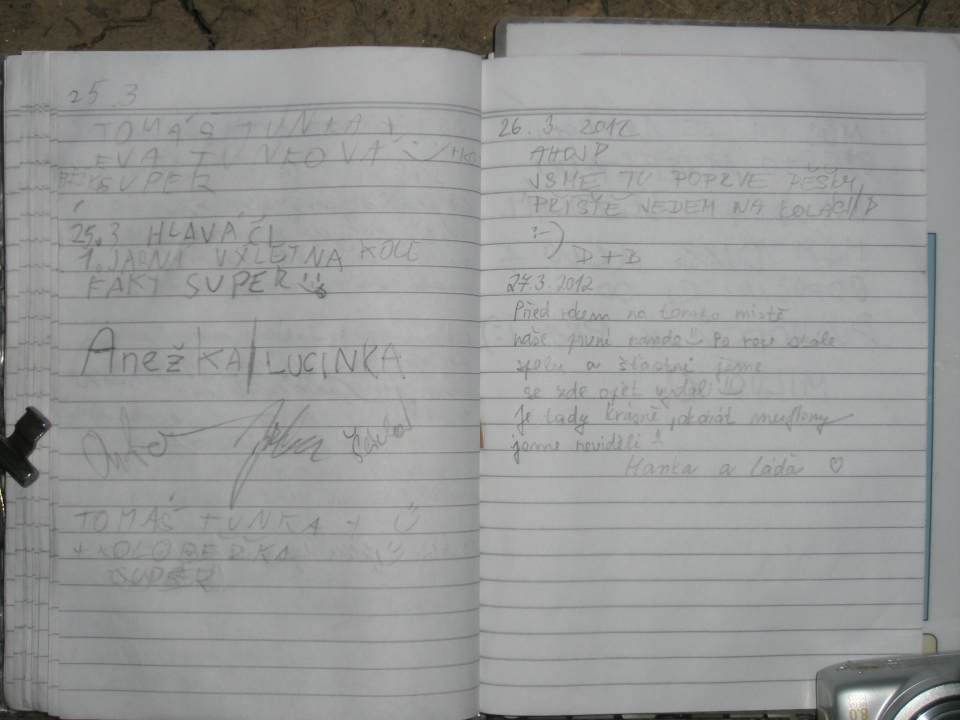 25.3
TOMÁŠ TUNKA +
EVA TUNKOVA
SUPER
25.3 HLAVÁČI
1. JARNÍ VÝLET NA KOLE
FAKT SUPER
AnežKA/LUCINKA
TOMÁŠ TUNKA +
+ KOLOBEŽKA
SUPER
26. 3. 2012
AHOJ
JSME TU POPRVÉ PĚŠKY,
PŘÍŠTĚ JEDEM NA KOLÁCH
:-) D + B
27.3. 2012
Před rokem na tomto místě
naše první rande Po roce stále
spolu a šťastní jsme
se zde opět
Je tady krásně, muflony
jsme neviděli!
Hanka a Láďa ♡
8.0